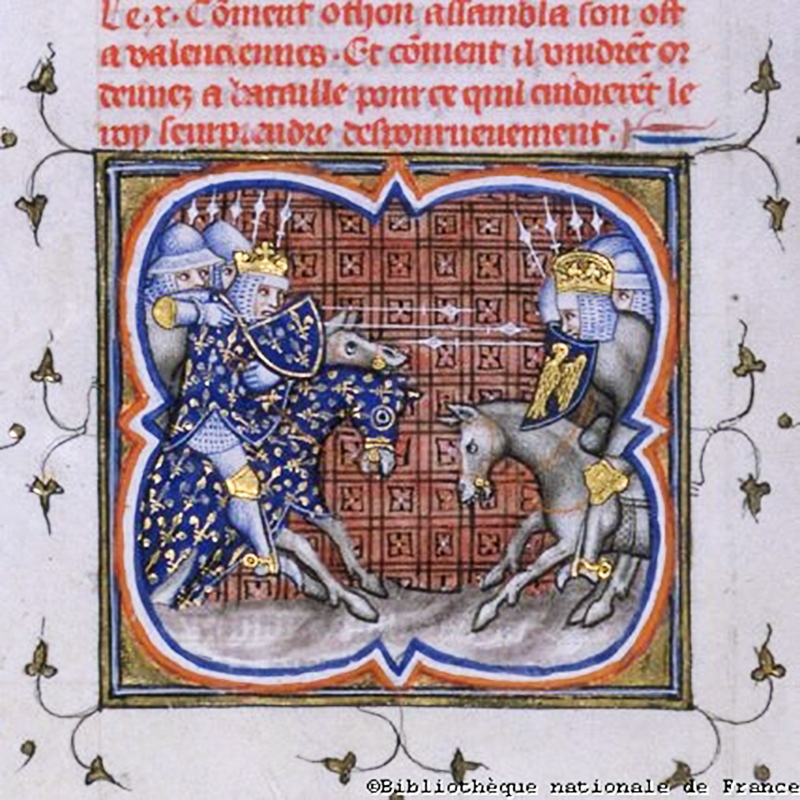 Le .x. Cõment othon assambla son ost
a valenciennes. Et cõment il vindrẽt or
dennez a bataille pour ce quil cuidierẽt le
roy seurprandre despourueuement.
©Bibliothèque nationale de France